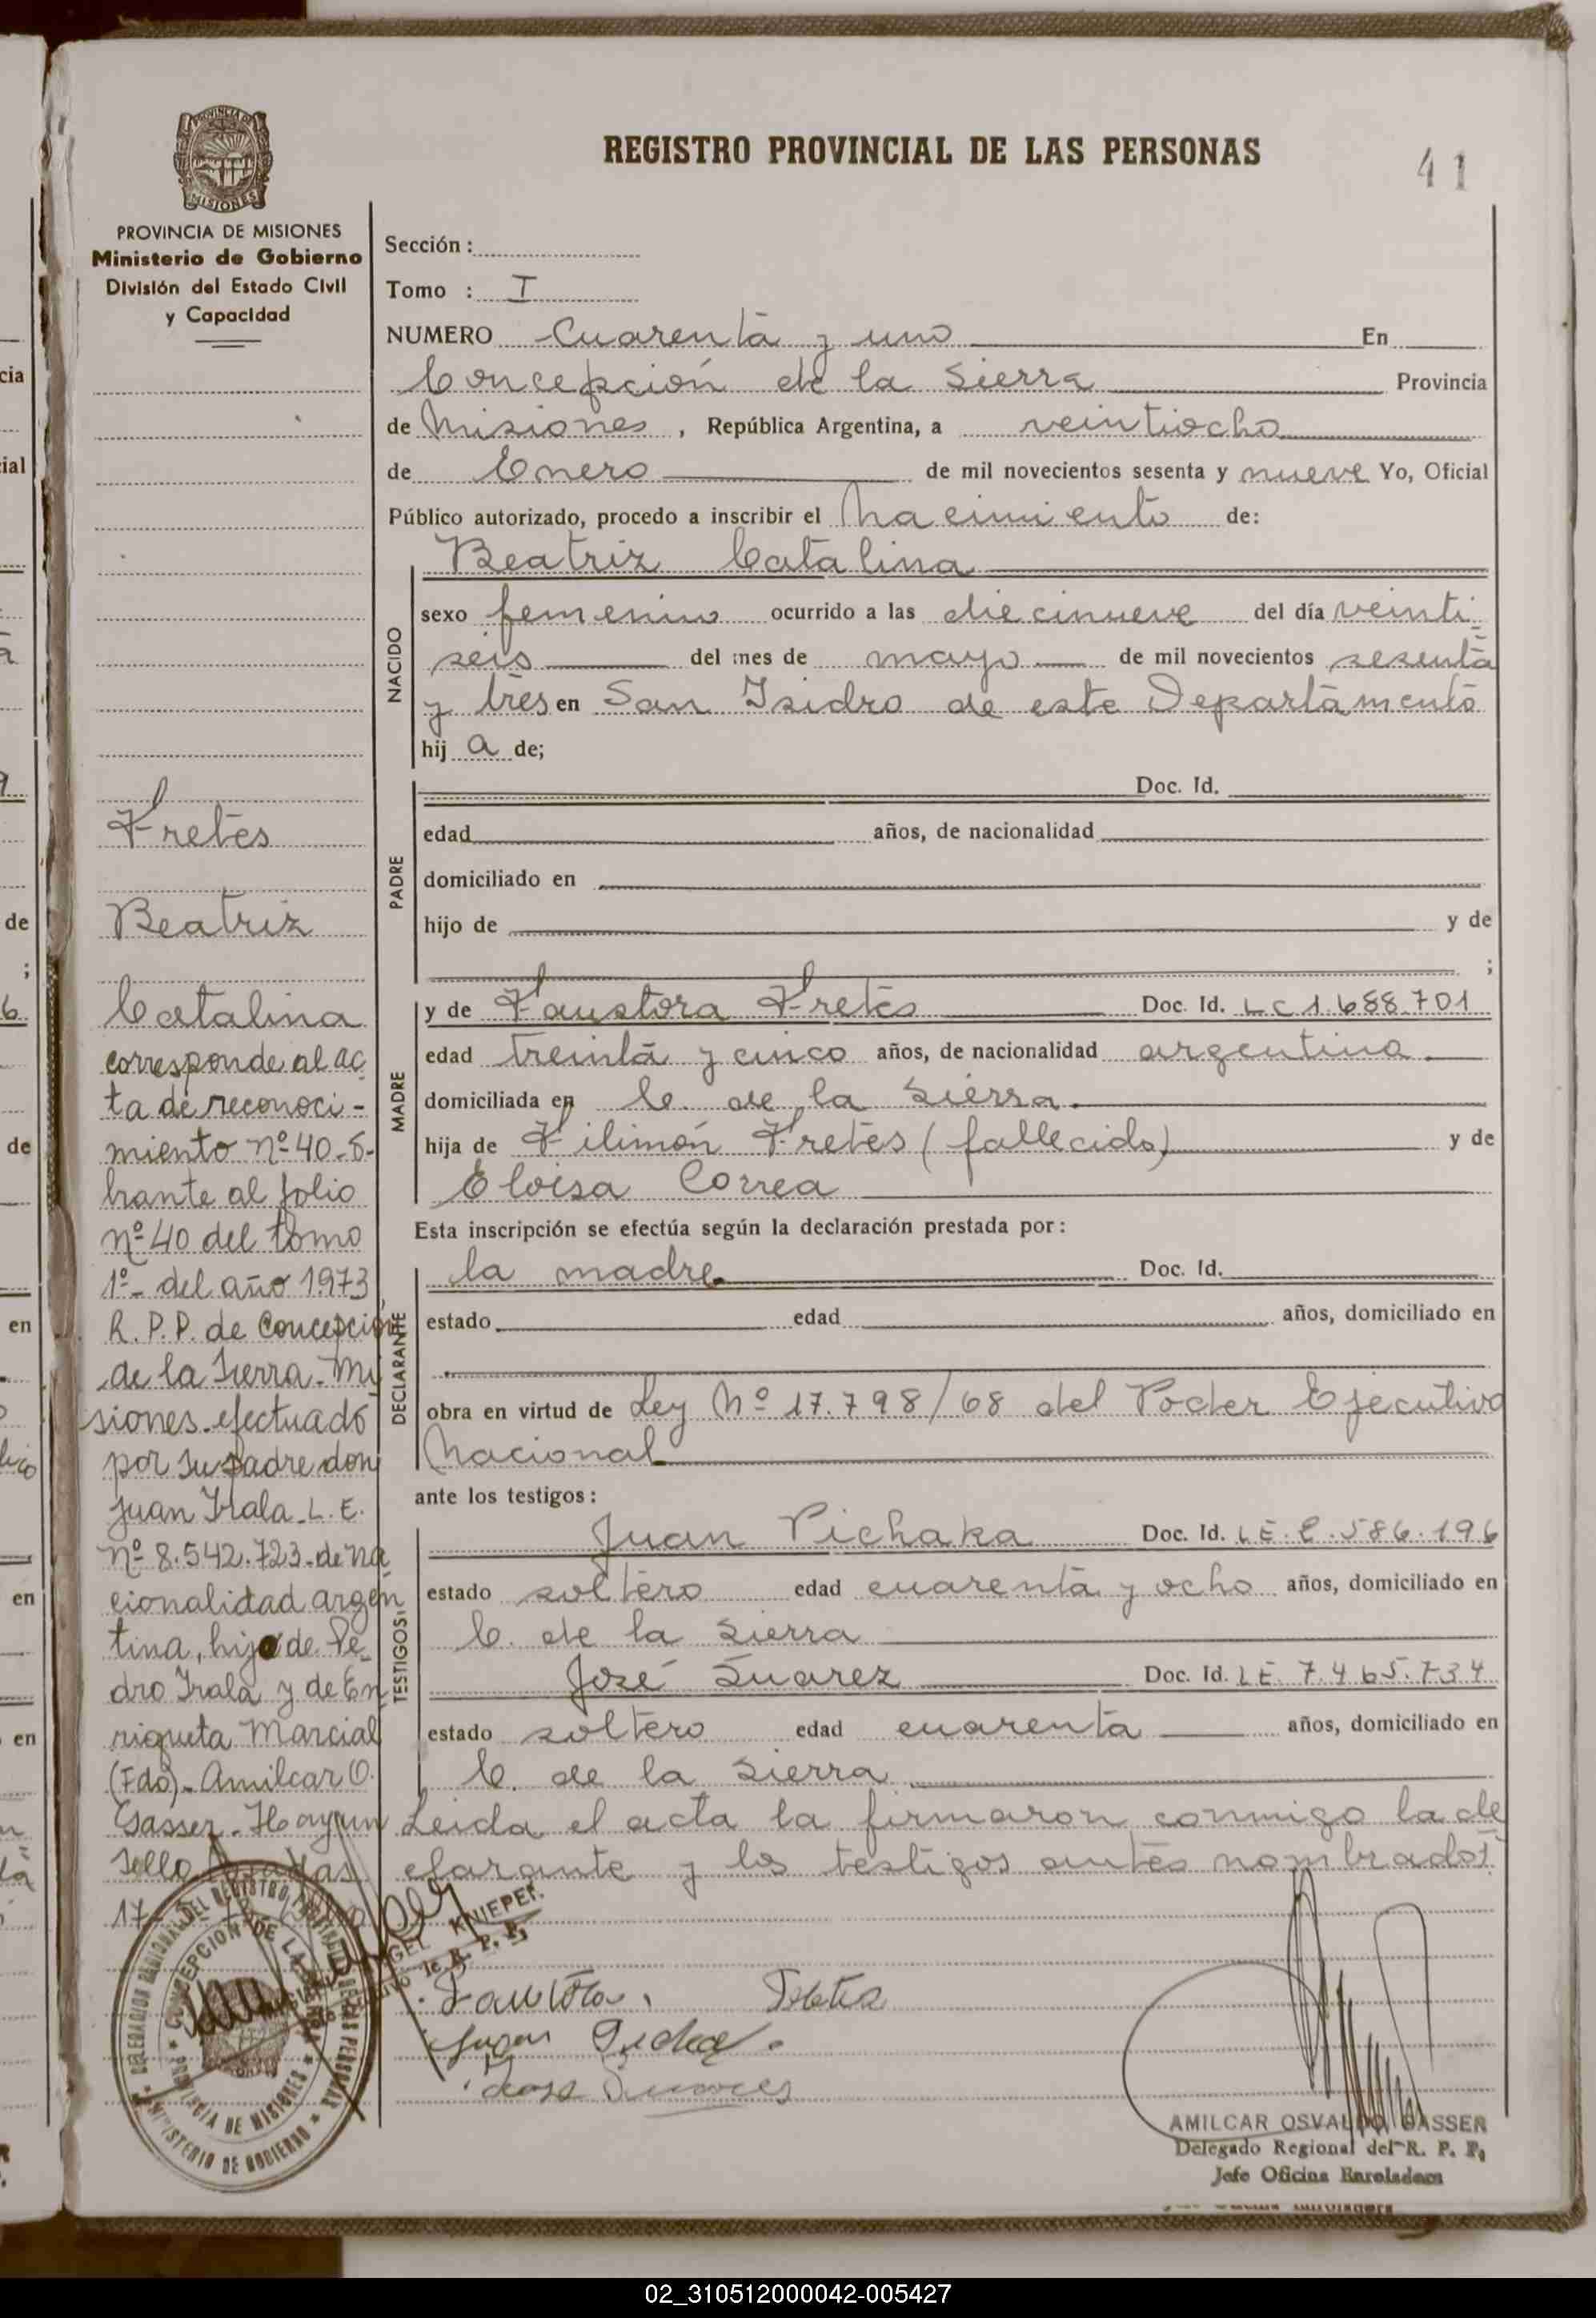 REGISTRO PROVINCIAL DE LAS PERSONAS
41
PROVINCIA DE MISIONES
Ministerio de Gobierno
División del Estado Civil
y Capacidad
Sección :
Tomo : I
NUMERO Cuarenta y uno En
Concepción de la Sierra Provincia
de Misiones, República Argentina, a veintiocho
de Enero de mil novecientos sesenta y nueve Yo, Oficial
Público autorizado, procedo a inscribir el Nacimiento de:
Beatriz Catalina
NACIDO
sexo femenino ocurrido a las diecinueve del día veinti
seis del mes de mayo de mil novecientos sesenta
y tres en San Isidro de este Departamento
hij a de;
PADRE
Doc. Id.
edad años, de nacionalidad
domiciliado en
hijo de y de
;
MADRE
y de Faustora Fretes Doc. Id. LC 1.688.701
edad treinta y cinco años, de nacionalidad argentina.
domiciliada en C. de la Sierra.
hija de Filimón Fretes (fallecido) y de
Eloisa Correa
Esta inscripción se efectúa según la declaración prestada por:
DECLARANTE
la madre. Doc. Id.
estado edad años, domiciliado en
obra en virtud de Ley Nº 17.798/68 del Poder Ejecutivo
Nacional.
ante los testigos:
TESTIGOS
Juan Pichaka Doc. Id. LE. 586.196
estado soltero edad cuarenta y ocho años, domiciliado en
C. de la Sierra
José Suarez Doc. Id. LE 7.465.734
estado soltero edad cuarenta años, domiciliado en
C. de la Sierra
Leida el acta la firmaron conmigo la de
clarante y los testigos antes nombrados
Fretes
Beatriz
Catalina
corresponde al ac
ta de reconoci-
miento nº 40-
hante al folio
nº 40 del tomo
1º- del año 1973
R. P. P. de Concepción
de la Sierra- Mi
siones- efectuado
por su padre don
Juan Irala- L. E.
nº 8.542.723- de na
cionalidad argen
tina, hijo de Pe-
dro Irala y de En
riqueta Marcial
(Fdo)- Amilcar O.
Gasser- Hay un
sello
17
DELEGACION REGIONAL DEL REGISTRO PROVINCIAL DE LAS PERSONAS
CONCEPCION DE LA SIERRA
PROVINCIA DE MISIONES
MINISTERIO DE GOBIERNO
ANGEL KNIEPER
R. P. P.
AMILCAR OSVALDO GASSER
Delegado Regional del R. P. P.
Jefe Oficina Enroladora
02_310512000042-005427